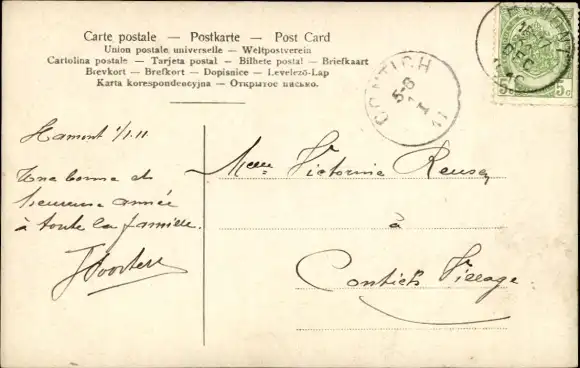 Carte postale — Postkarte — Post Card
Union postale universelle — Weltpostverein
Cartolina postale — Tarjeta postal — Bilhete postal — Briefkaart
Brevkort — Brefkort — Dopisnice — Levelező-Lap
Karta korespondencyjna — Открытое письмо.
CONTICH
5-6
11
5c 5c
Hamont 1/1.11
Une bonne et
heureuse année
à toute la famille.
Melle Victorine
à
Contich Village